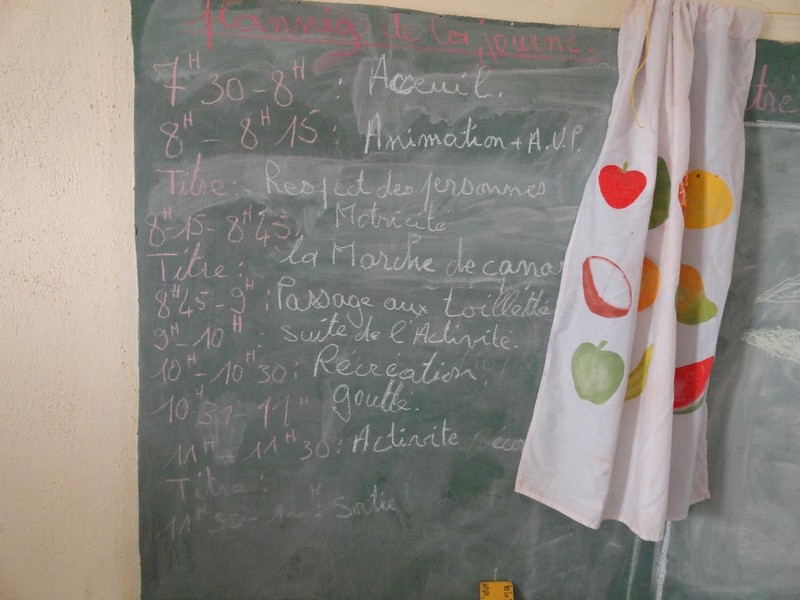 plannig de la journe.
7H30-8H : Acceuil.
8H-8H15 : Animation + A.V.P.
Titre : Respect des personnes
8H-15-8H45 : Motricité
Titre : la Marche de canar
8H45-9H : Passage aux toillette
9H-10H. suite de l'Activité.
10H-10H30 : Récréation.
10H31-11H goutté.
11H-11H30 : Activite
Titre :
11H30-12H : Sortie